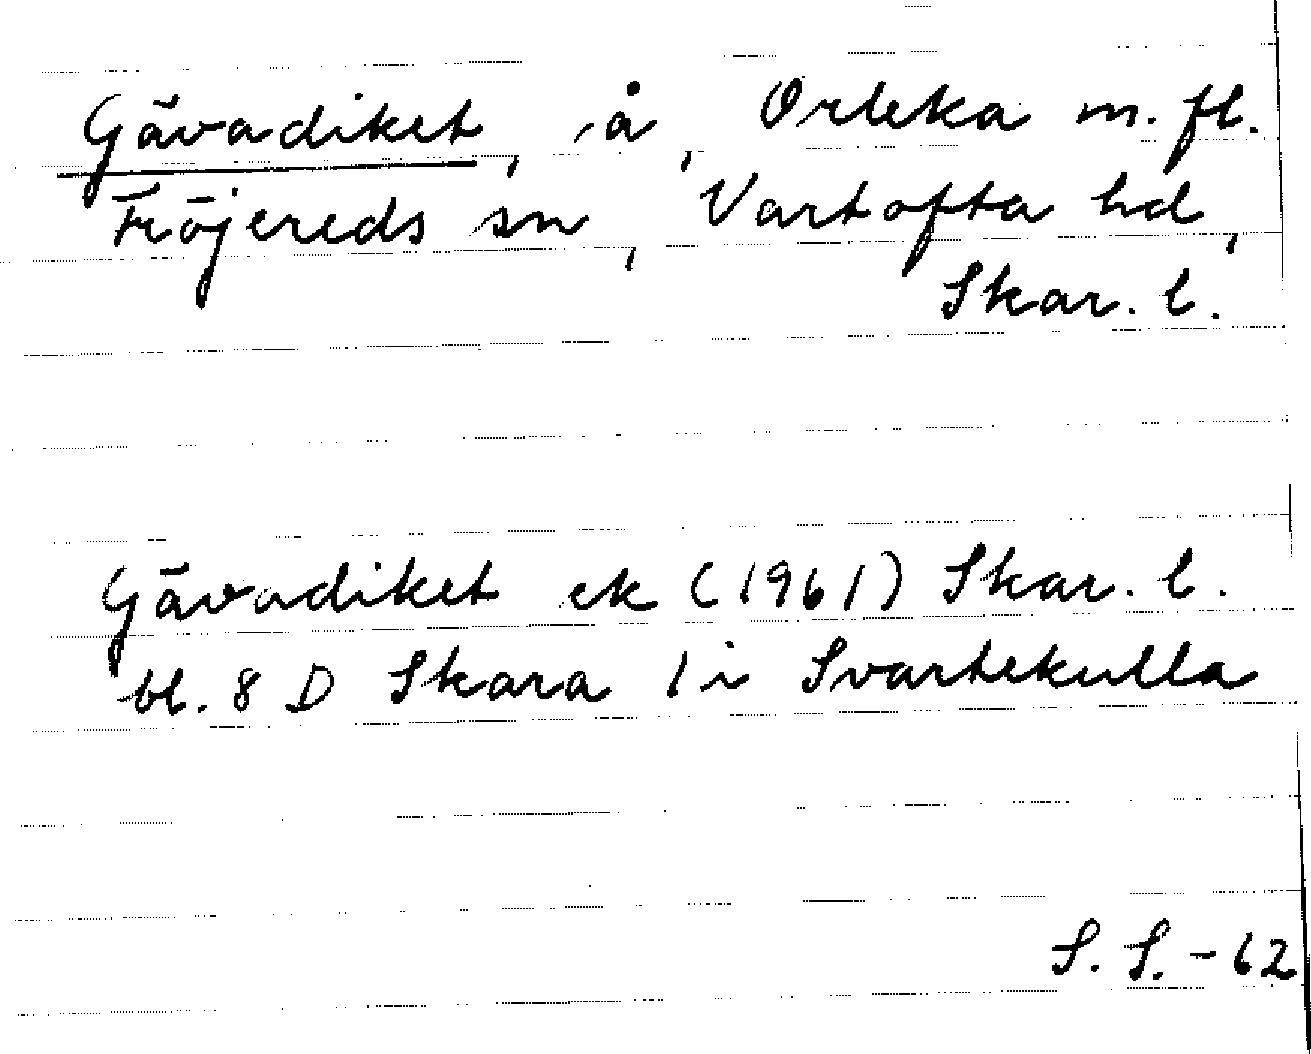 Gävadiket, å, Orleka m. fl.
Fröjereds sn, Vartofta hd,
Skar. l.
Gävadiket ek (1961) Skar. l.
bl. 8 D Skara 1 i Svartekulla
S. S. - 62